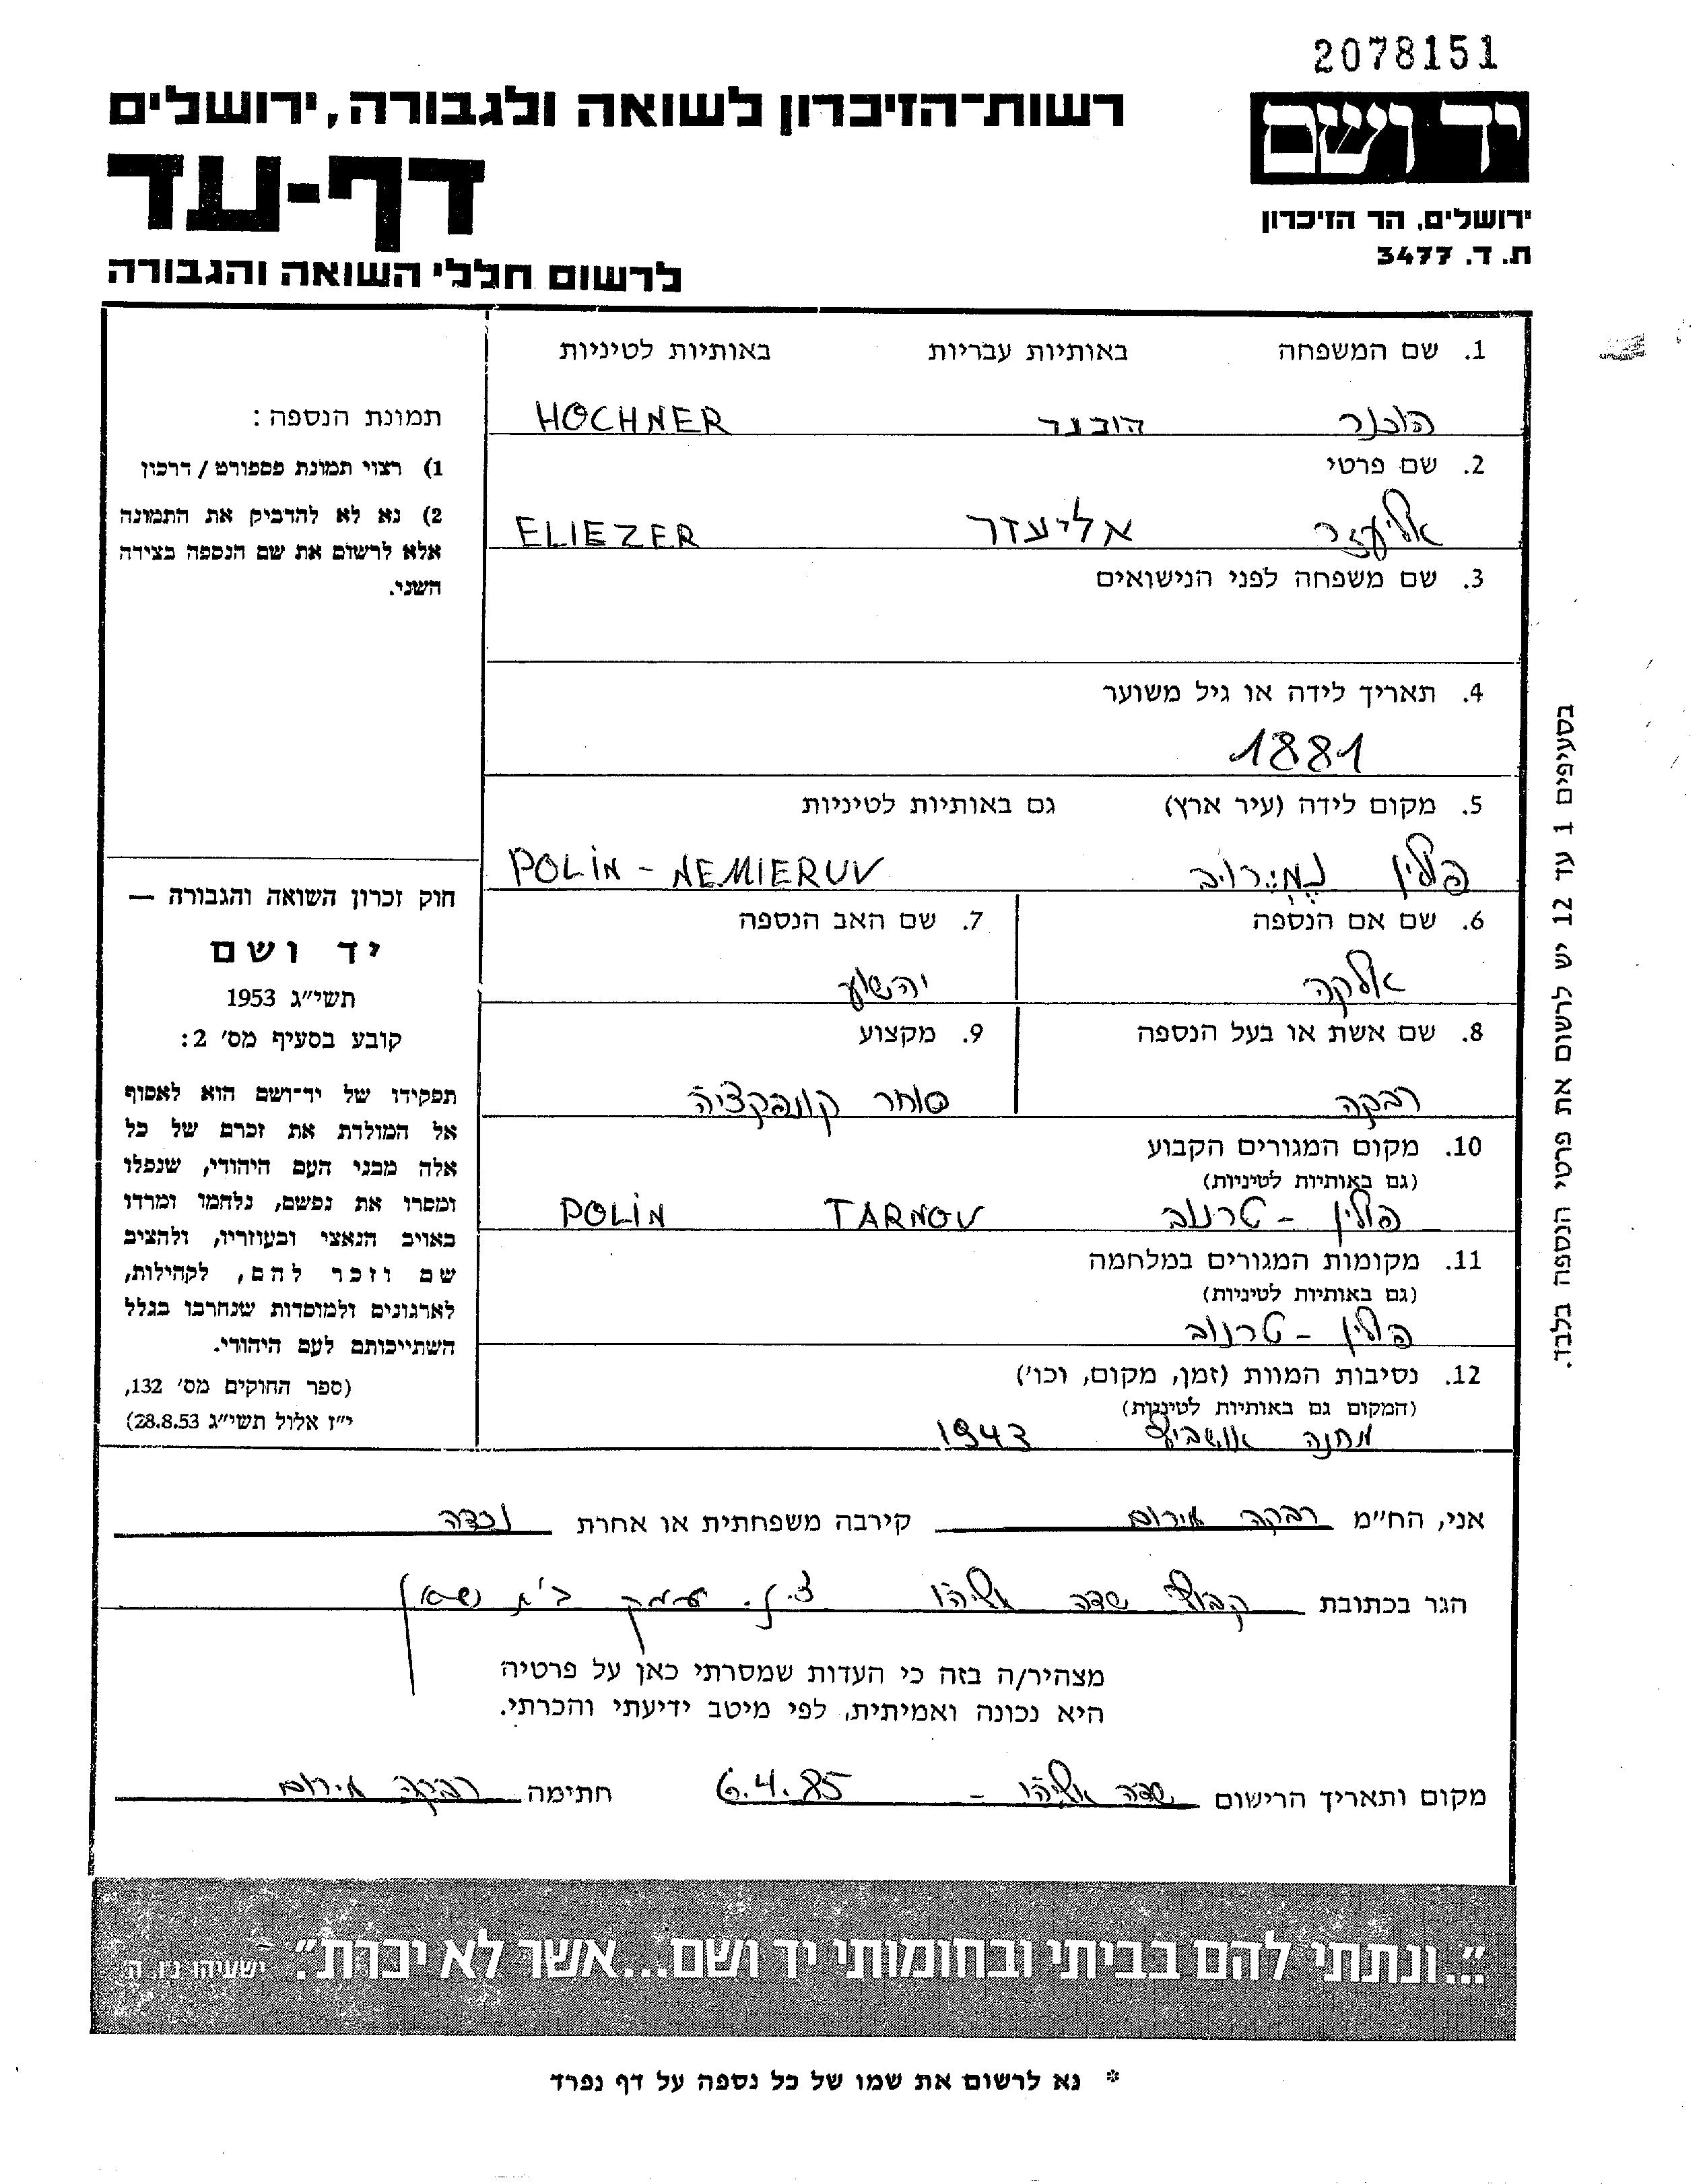 2078151
רשות־הזיכרון לשואה ולגבורה, ירושלים
יד ושם
דף-עד
ירושלים, הר הזיכרון
ת. ד. 3477
לרשום חללי השואה והגבורה
1. שם המשפחה באותיות עבריות באותיות לטיניות
הוכנר הוכנר HOCHNER
2. שם פרטי
אליעזר אליעזר ELIEZER
3. שם משפחה לפני הנישואים
4. תאריך לידה או גיל משוער
1881
5. מקום לידה (עיר ארץ) גם באותיות לטיניות
פולין נֶמְיֶרוֹיב POLIN - NEMIERUV
6. שם אם הנספה 7. שם האב הנספה
אלקה יהושע
8. שם אשת או בעל הנספה 9. מקצוע
רבקה סוחר קונפקציה
10. מקום המגורים הקבוע
(גם באותיות לטיניות)
פולין - טרנוב TARNOV POLIN
11. מקומות המגורים במלחמה
(גם באותיות לטיניות)
פולין - טרנוב
12. נסיבות המוות (זמן, מקום, וכו')
(המקום גם באותיות לטיניות)
מחנה אושביץ 1943
תמונת הנספה:
1) רצוי תמונת פספורט / דרכון
2) נא לא להדביק את התמונה
אלא לרשום את שם הנספה בצידה
השני.
חוק זכרון השואה והגבורה —
יד ושם
תשי״ג 1953
קובע בסעיף מס' 2:
תפקידו של יד־ושם הוא לאסוף
אל המולדת את זכרם של כל
אלה מבני העם היהודי, שנפלו
ומסרו את נפשם, נלחמו ומרדו
באויב הנאצי ובעוזריו, ולהציב
שם וזכר להם, לקהילות,
לארגונים ולמוסדות שנחרבו בגלל
השתייכותם לעם היהודי.
(ספר החוקים מס' 132,
י״ז אלול תשי״ג 28.8.53)
בסעיפים 1 עד 12 יש לרשום את פרטי הנספה בלבד.
אני, הח״מ רבקה קירבה משפחתית או אחרת נכדה
הגר בכתובת קבוץ שדה אליהו ד.נ. עמק בית שאן
מצהיר/ה בזה כי העדות שמסרתי כאן על פרטיה
היא נכונה ואמיתית, לפי מיטב ידיעתי והכרתי.
מקום ותאריך הרישום שדה אליהו - 6.4.85 חתימה רבקה
"...ונתתי להם בביתי ובחומותי יד ושם...אשר לא יכרת". ישעיהו נ״ו, ה'
* נא לרשום את שמו של כל נספה על דף נפרד